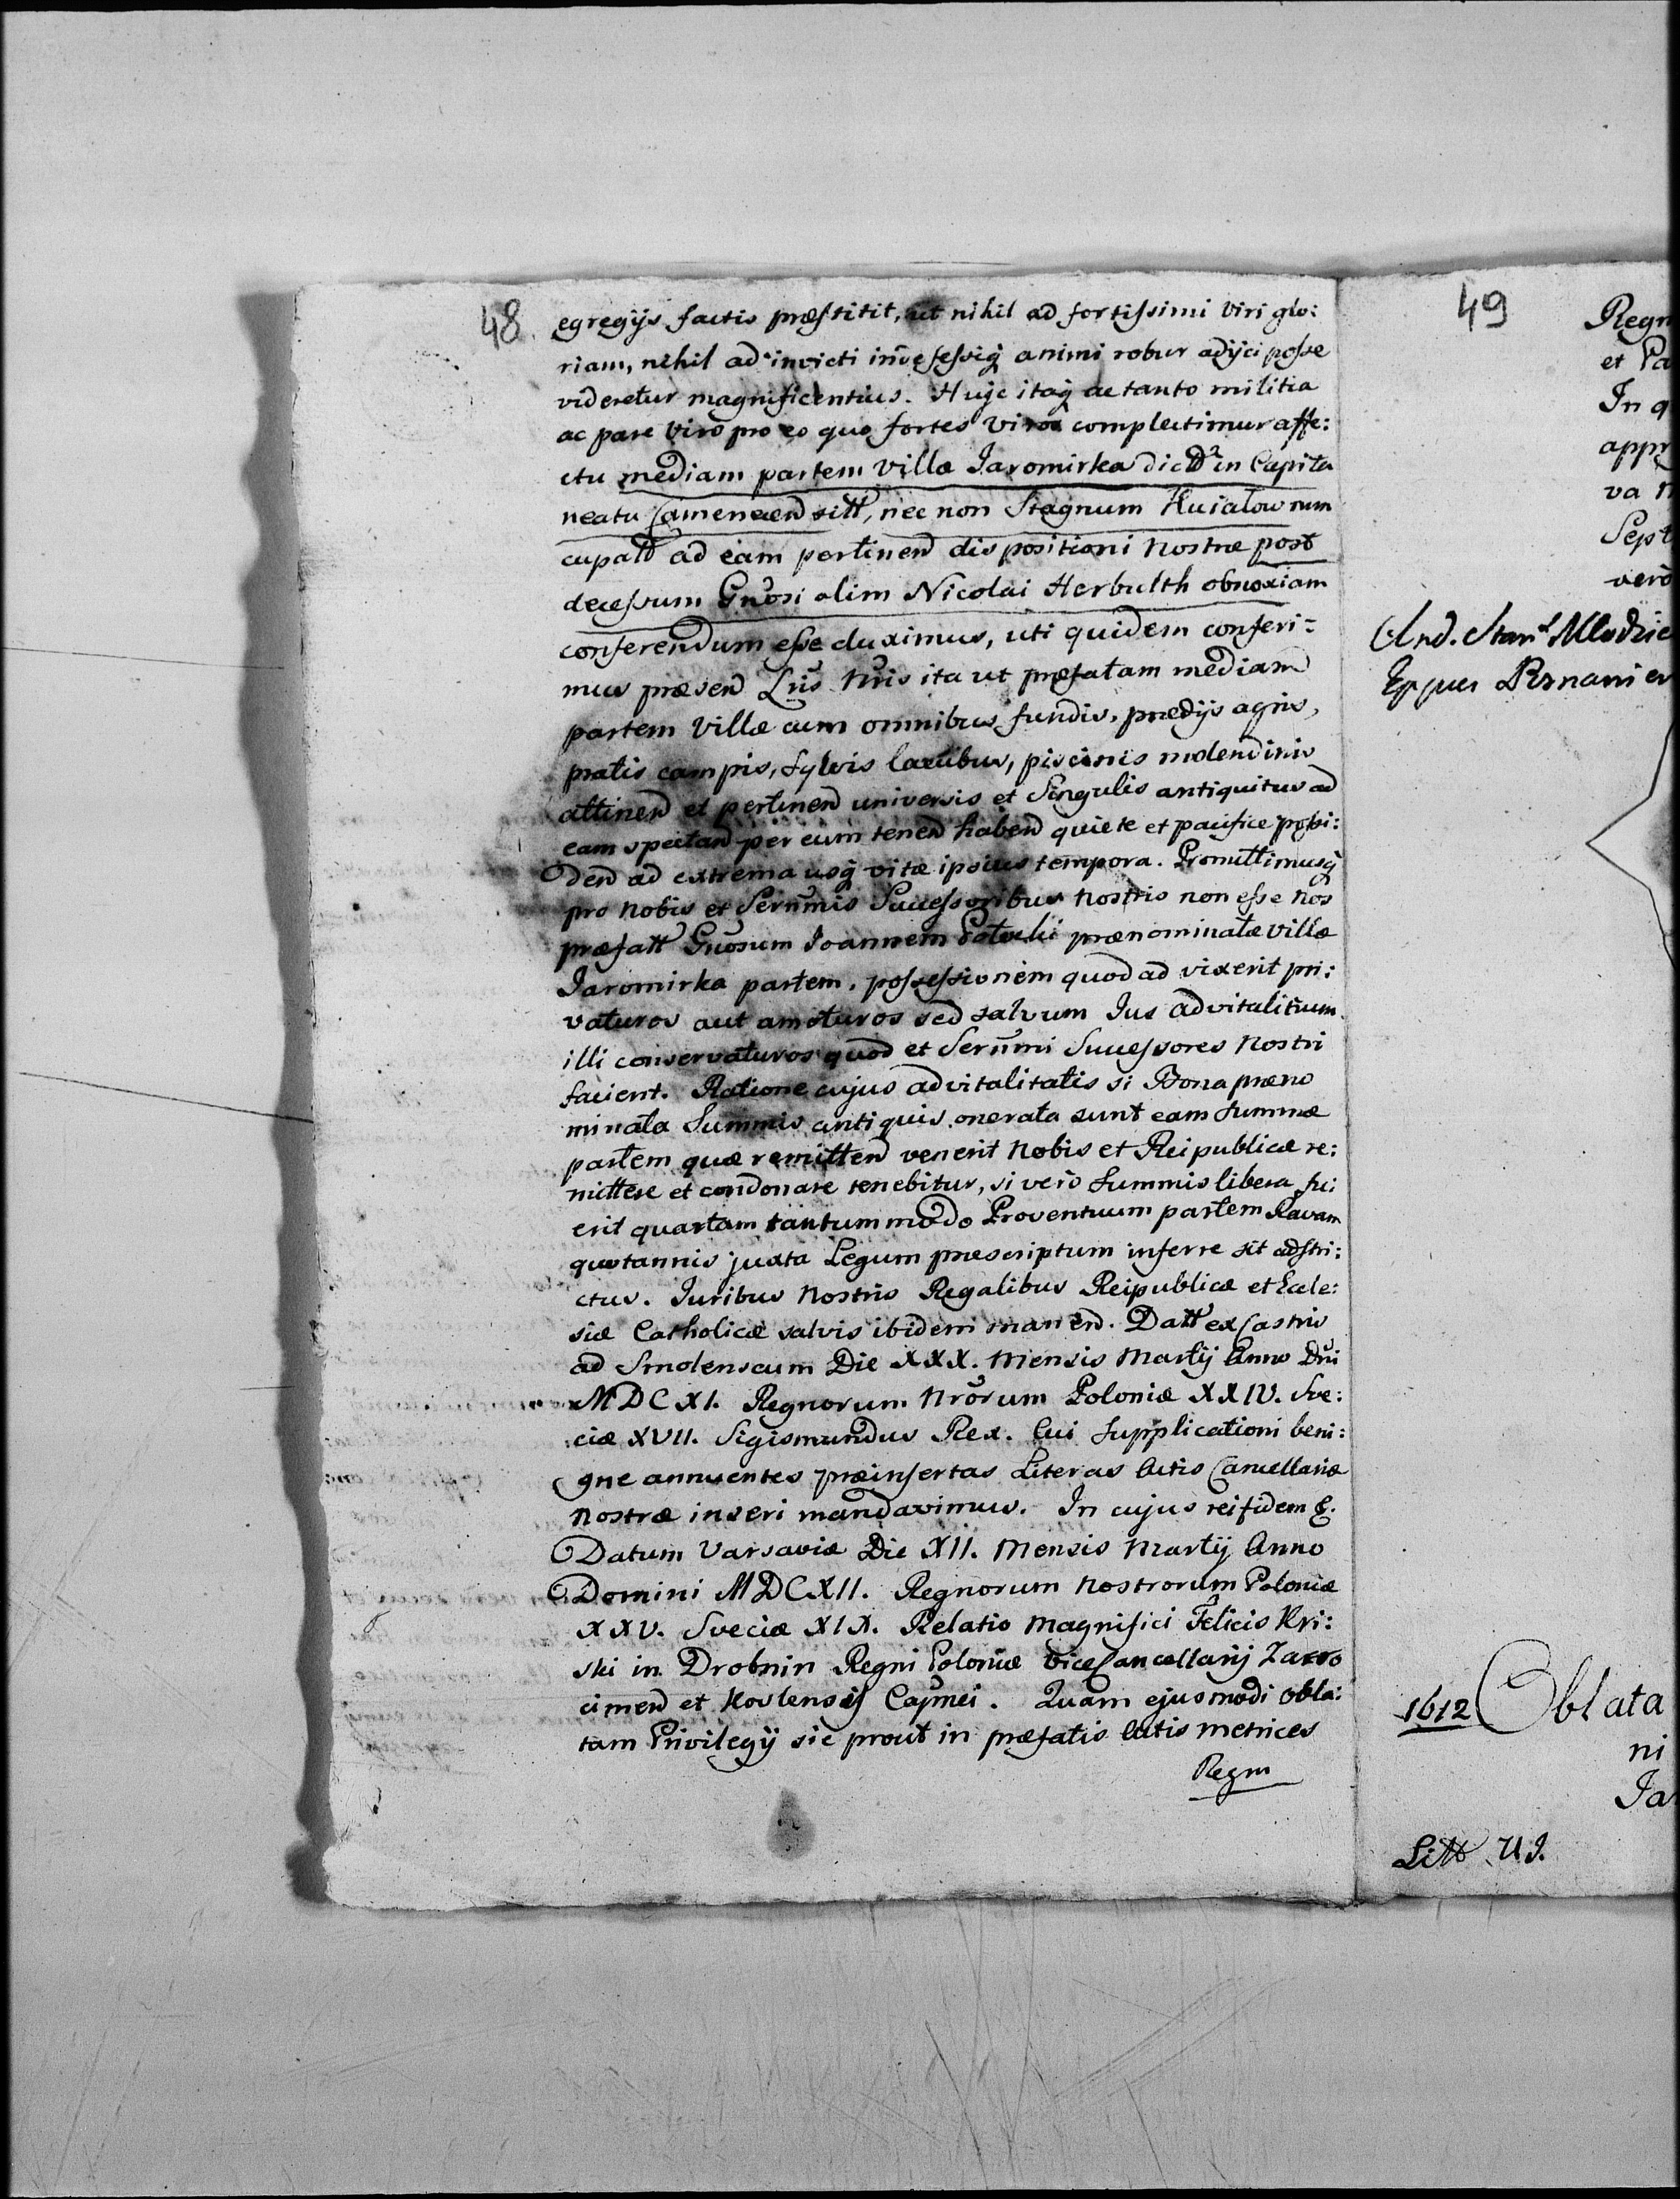 48.
egregijs factis præstitit, ut nihil ad fortissimi viri glo:
riam, nihil ad invicti animi robur adijci posse
videretur magnificentius. Huic itaq ac tanto militia
ac pare viro pro eo quo fortes viros complectimur affe:
ctu mediam partem villæ Jaromirka dictt in Capita
neatu Camenecen sitt, nec non Stagnum Kuiatow nun
cupatt ad eam pertinen dispositioni nostræ post
decessum Gnosi olim Nicolai Herbulth obnoxiam
conferendum esse duximus, uti quidem conferi:
mus præsen Lris Nris ita ut præfatam mediam
partem villæ cum omnibus fundis, prædijs agris,
pratis campis, sylvis lacubus, piscinis molendinis
attinen et pertinen universis et singulis antiquitus ad
eam spectan per eum tenen haben quiete et pacifice possi:
den ad extrema usq vitæ ipsius tempora. Promittimusq
pro nobis et Serūmis Successoribus nostris non esse nos
præfatt Gnosum Joannem prænominatæ villæ
Jaromirka partem, possessionem quod ad vixerit pri:
vaturos aut amoturos sed salvum Jus advitalitium
illi conservaturos quod et Serūmi Successores nostri
facient. Ratione cujus advitalitatis si Bona præno
minata Summis antiquis onerata sunt eam summæ
partem quæ remitten venerit nobis et Reipublicæ re:
mittere et condonare tenebitur, si verò summis libera fu:
erit quartam tantummodo Proventuum partem Ravam
quotannis juxta Legum præscriptum inferre sit adstri:
ctus. Juribus nostris Regalibus Reipublicæ et Eccle:
siæ Catholicæ salvis ibidem manen. Datt ex Castris
ad Smolenscum Die XXX. Mensis Martij Anno Dni
MDCXI. Regnorum Nrōrum Poloniæ XXIV. Sve:
ciæ XVII. Sigismundus Rex. Cui supplicationi beni:
gne annuentes præinsertas Literas Actis Cancellariæ
nostræ inseri mandavimus. In cujus rei fidem &.
Datum Varsaviæ Die XII. Mensis Martij Anno
Domini MDCXII. Regnorum nostrorum Poloniæ
XXV. Sveciæ XIX. Relatio Magnifici Felicis Kri:
ski in Drobnin Regni Poloniæ ViceCancellarij Zakro
cimen et Capnei. Quam ejusmodi obla:
tam Privilegij sic prout in præfatis Actis metrices
Regni
49
Regn
et Pa
In q
appr
va n
Sept
verò
And. Stan Mlodzie
Eppus Posnanien
1612 Oblata
ni
Ja
Litt UJ.